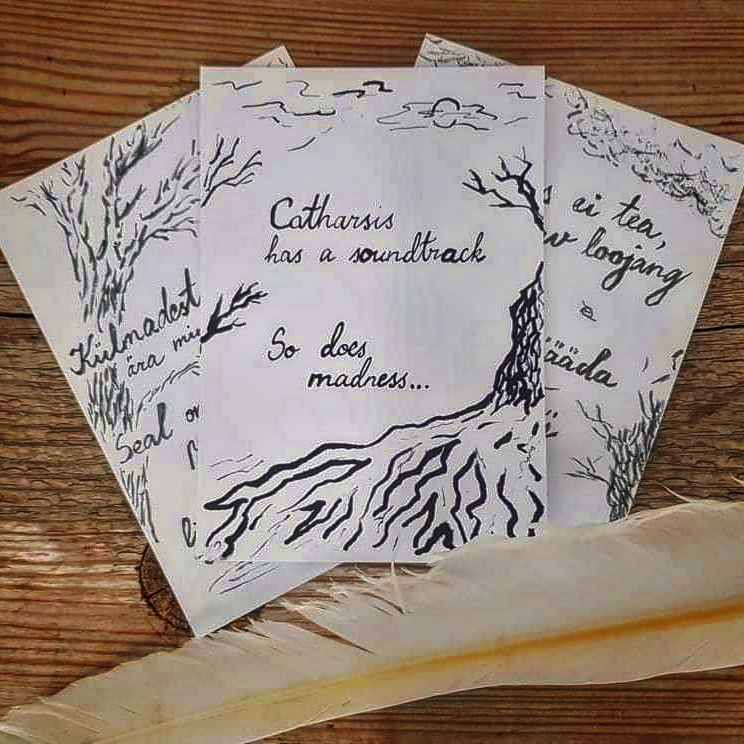 Külmadest
ära
Seal
Catharsis
has a soundtrack
So does
madness...
ei tea,
loojang